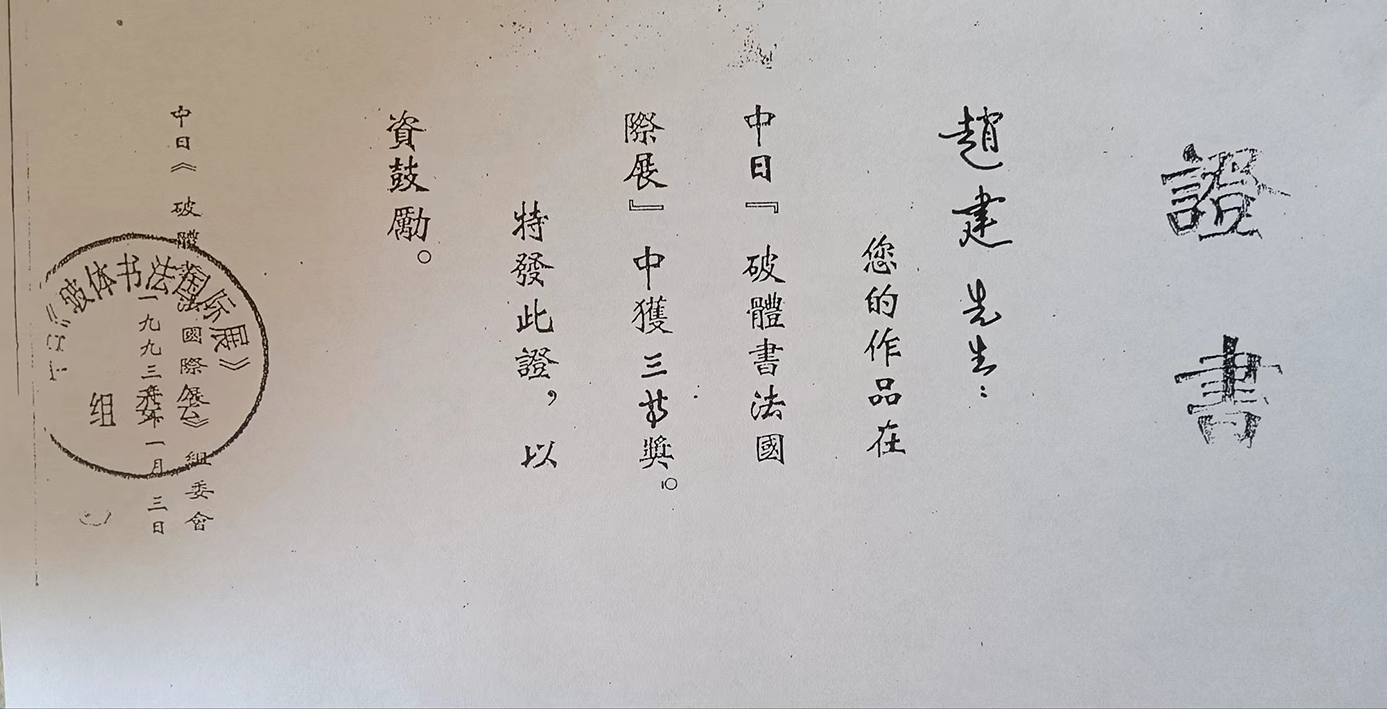 證書
趙建先生：
您的作品在
中日『破體書法國
際展』中獲三等獎。
特發此證，以
資鼓勵。
中日《破體書法國際展》組委會
一九九三年一月三日
《破体书法国际展》
组